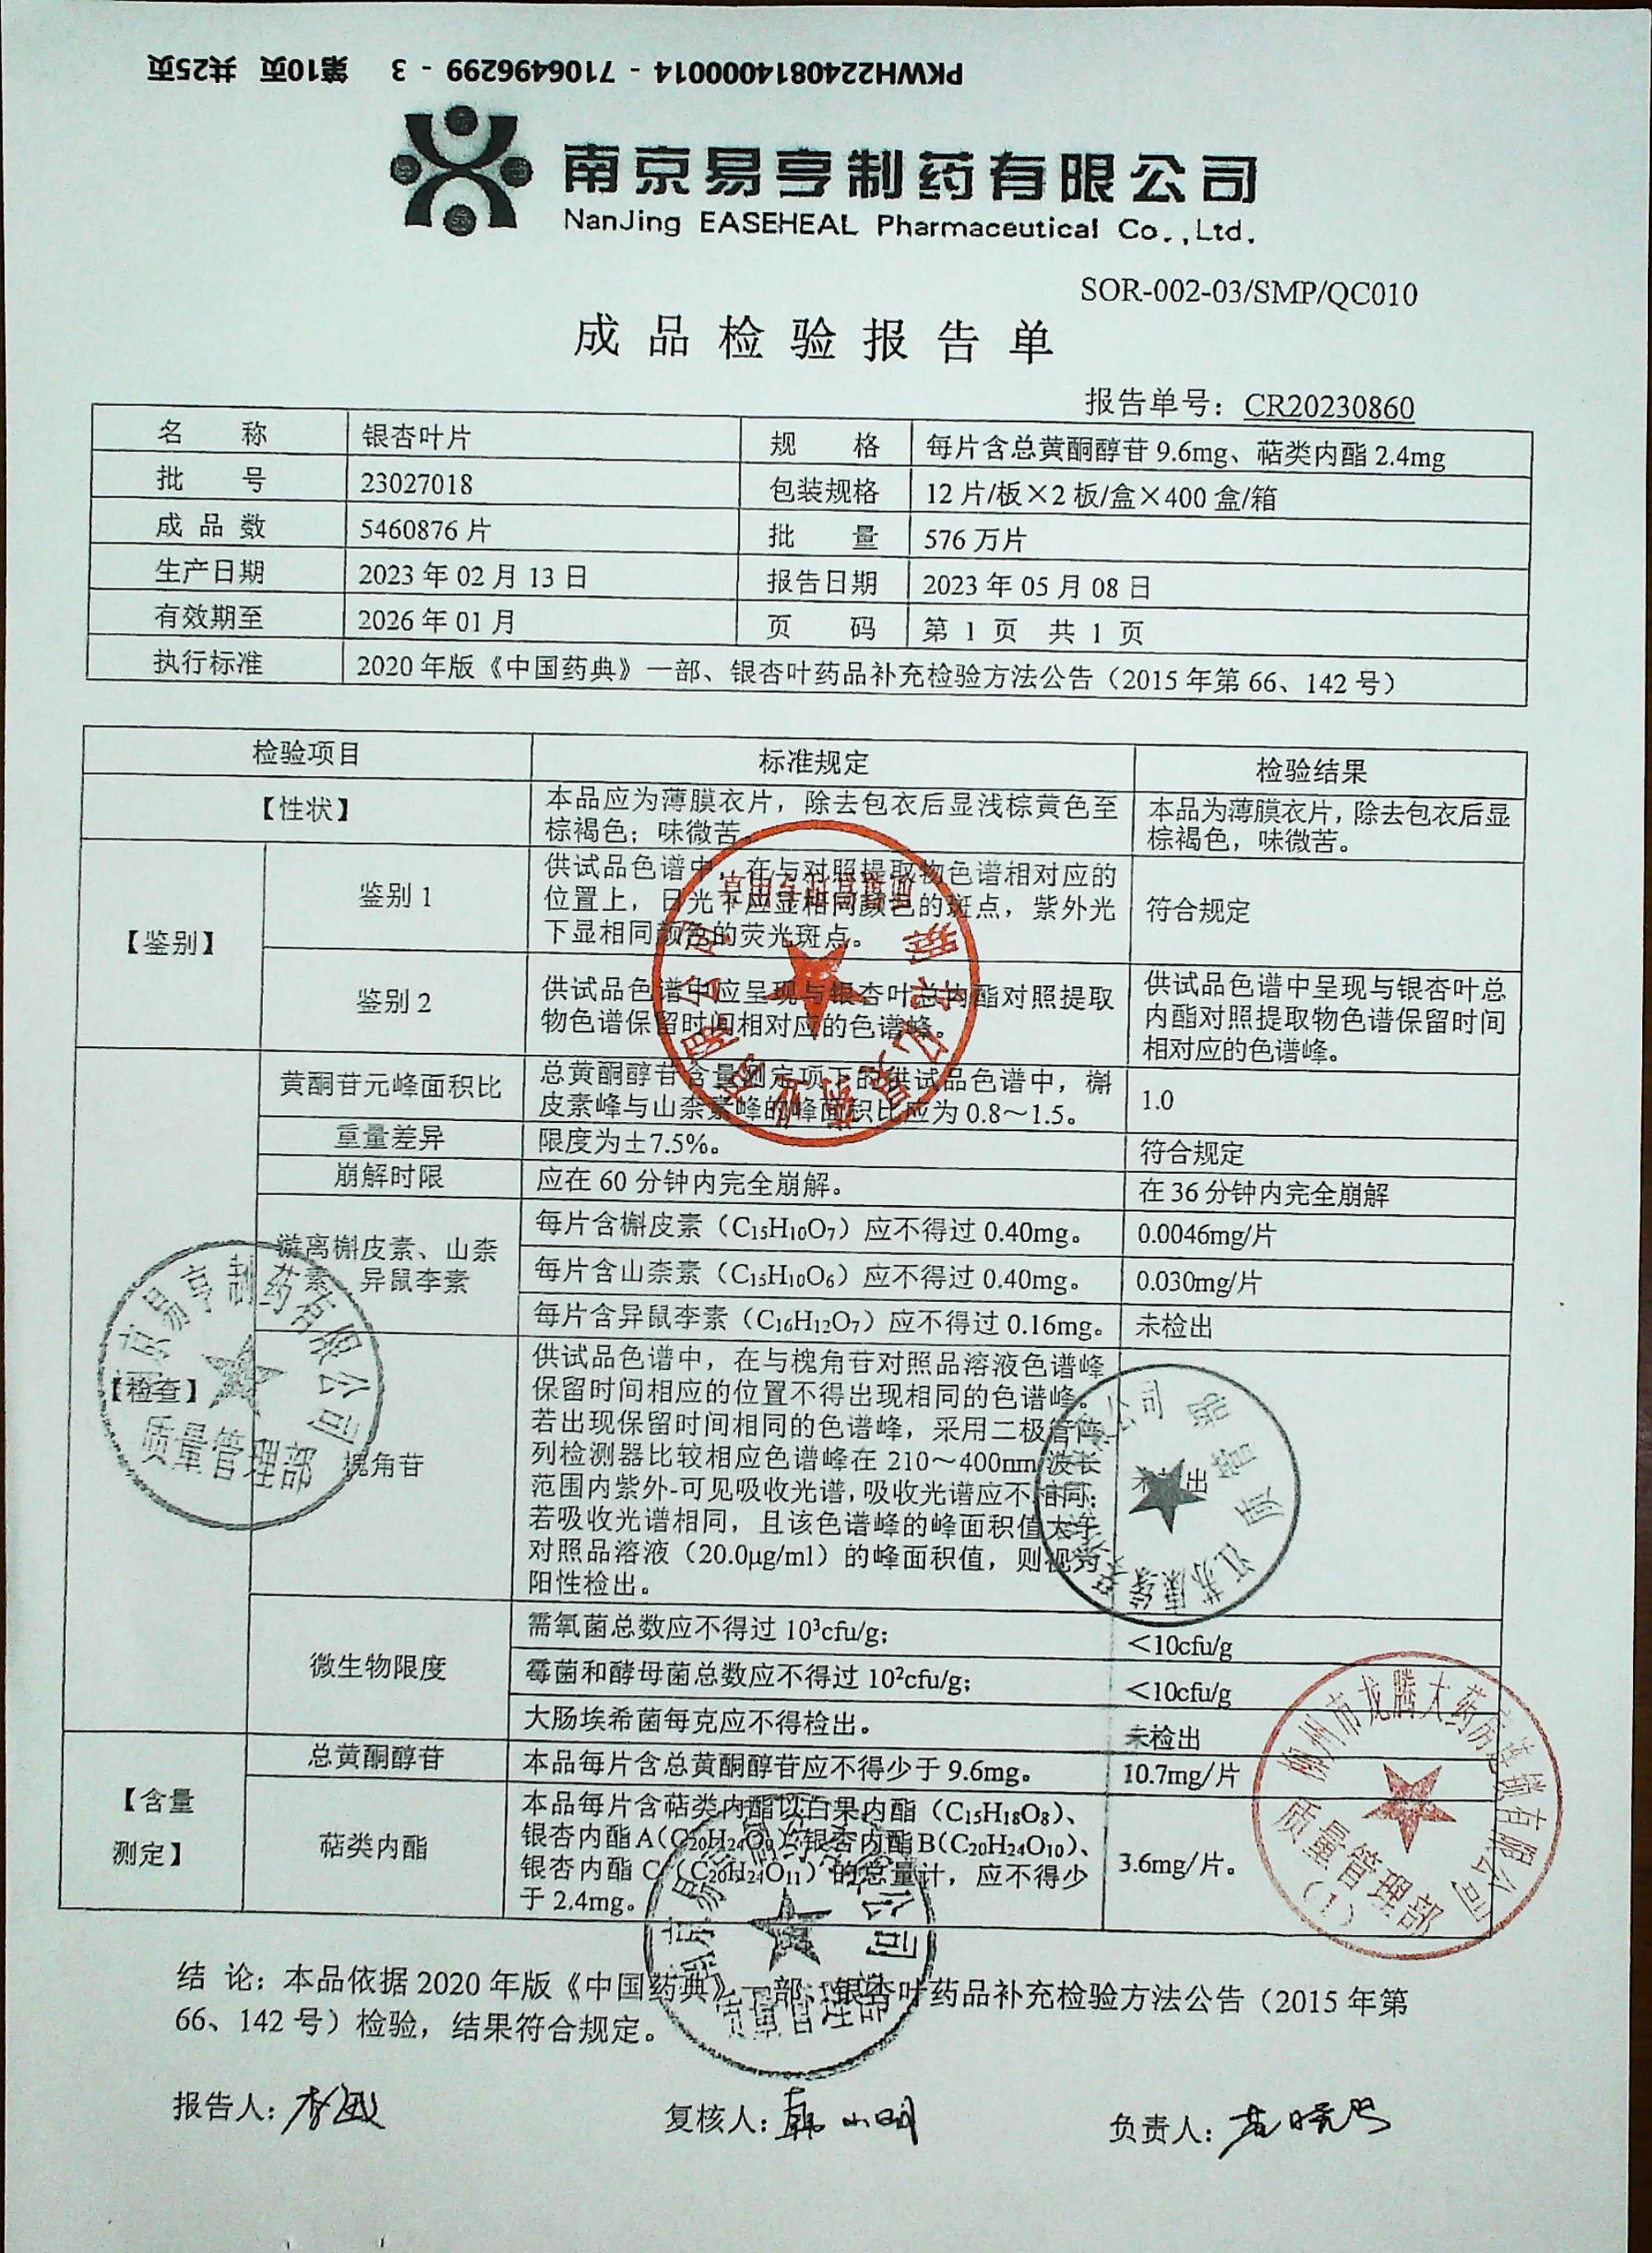 PKWH22408140000014 - 7106496299 - 3 第10页 共25页
南京易亨制药有限公司
NanJing EASEHEAL Pharmaceutical Co.,Ltd.
SOR-002-03/SMP/QC010
成品检验报告单
报告单号：CR20230860
名 称 银杏叶片 规 格 每片含总黄酮醇苷 9.6mg、萜类内酯 2.4mg
批 号 23027018 包装规格 12 片/板×2 板/盒×400 盒/箱
成 品 数 5460876 片 批 量 576 万片
生产日期 2023 年 02 月 13 日 报告日期 2023 年 05 月 08 日
有效期至 2026 年 01 月 页 码 第 1 页 共 1 页
执行标准 2020 年版《中国药典》一部、银杏叶药品补充检验方法公告（2015 年第 66、142 号）
检验项目 标准规定 检验结果
【性状】
本品应为薄膜衣片，除去包衣后显浅棕黄色至
棕褐色；味微苦。
本品为薄膜衣片，除去包衣后显
棕褐色，味微苦。
【鉴别】
鉴别 1
供试品色谱中，在与对照提取物色谱相对应的
位置上，日光下应显相同颜色的斑点，紫外光
下显相同颜色的荧光斑点。
符合规定
鉴别 2
供试品色谱中应呈现与银杏叶总内酯对照提取
物色谱保留时间相对应的色谱峰。
供试品色谱中呈现与银杏叶总
内酯对照提取物色谱保留时间
相对应的色谱峰。
【检查】
黄酮苷元峰面积比
总黄酮醇苷含量测定项下的供试品色谱中，槲
皮素峰与山柰素峰的峰面积比应为 0.8～1.5。
1.0
重量差异 限度为±7.5%。 符合规定
崩解时限 应在 60 分钟内完全崩解。 在 36 分钟内完全崩解
游离槲皮素、山柰
素、异鼠李素
每片含槲皮素（C₁₅H₁₀O₇）应不得过 0.40mg。 0.0046mg/片
每片含山柰素（C₁₅H₁₀O₆）应不得过 0.40mg。 0.030mg/片
每片含异鼠李素（C₁₆H₁₂O₇）应不得过 0.16mg。 未检出
槐角苷
供试品色谱中，在与槐角苷对照品溶液色谱峰
保留时间相应的位置不得出现相同的色谱峰。
若出现保留时间相同的色谱峰，采用二极管阵
列检测器比较相应色谱峰在 210～400nm 波长
范围内紫外-可见吸收光谱，吸收光谱应不相同；
若吸收光谱相同，且该色谱峰的峰面积值大于
对照品溶液（20.0μg/ml）的峰面积值，则视为
阳性检出。
未检出
微生物限度
需氧菌总数应不得过 10³cfu/g； ＜10cfu/g
霉菌和酵母菌总数应不得过 10²cfu/g； ＜10cfu/g
大肠埃希菌每克应不得检出。 未检出
【含量
测定】
总黄酮醇苷 本品每片含总黄酮醇苷应不得少于 9.6mg。 10.7mg/片
萜类内酯
本品每片含萜类内酯以白果内酯（C₁₅H₁₈O₈）、
银杏内酯 A（C₂₀H₂₄O₉）、银杏内酯 B（C₂₀H₂₄O₁₀）、
银杏内酯 C（C₂₀H₂₄O₁₁）的总量计，应不得少
于 2.4mg。
3.6mg/片。
南京易亨制药有限公司
质量管理部
柳州市龙腾大药房连锁有限公司
质量管理部
（1）
南京易亨制药有限公司
质量管理部
结 论：本品依据 2020 年版《中国药典》一部、银杏叶药品补充检验方法公告（2015 年第
66、142 号）检验，结果符合规定。
报告人： 复核人：韩小明 负责人：